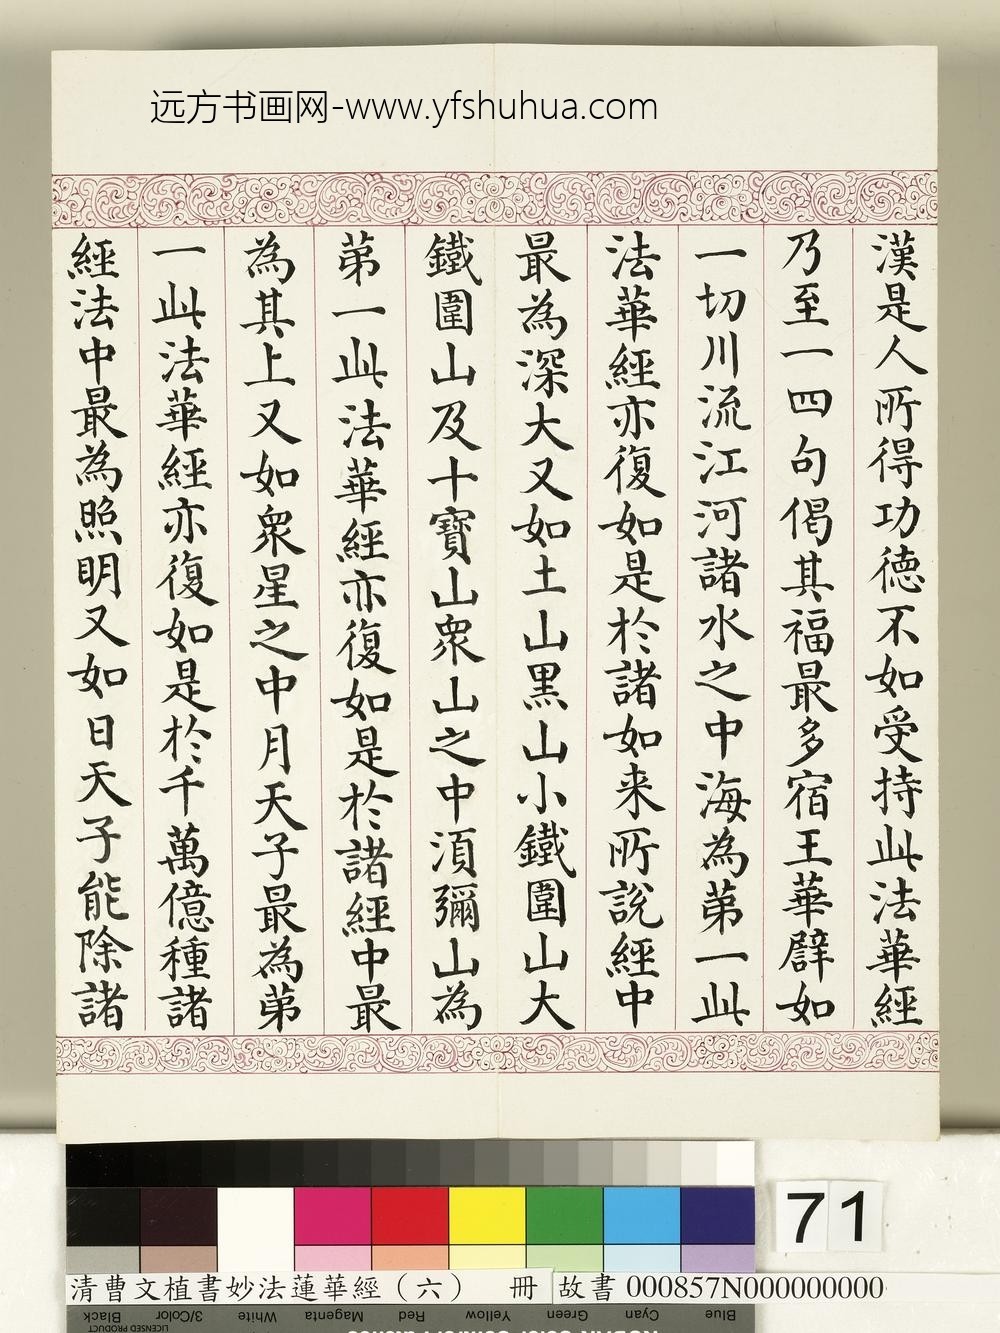 远方书画网-www.yfshuhua.com
漢是人所得功德不如受持此法華經
乃至一四句偈其福最多宿王華譬如
一切川流江河諸水之中海為第一此
法華經亦復如是於諸如来所說經中
最為深大又如土山黑山小鐵圍山大
鐵圍山及十寶山眾山之中須彌山為
第一此法華經亦復如是於諸經中最
為其上又如眾星之中月天子最為第
一此法華經亦復如是於千萬億種諸
經法中最為照明又如日天子能除諸
71
清曹文植書妙法蓮華經（六） 冊 故書 000857N000000000
Black 3/Color White Magenta Red Yellow Green Cyan Blue
LICENSED PRODUCT